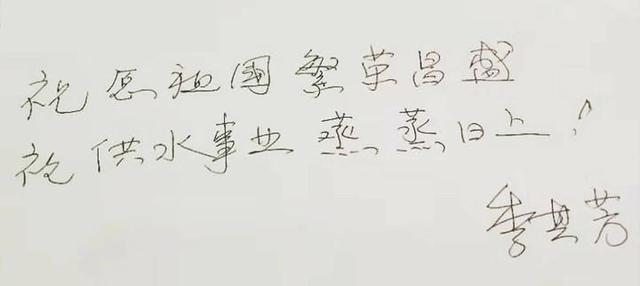 祝愿祖國繁荣昌盛
祝供水事业蒸蒸日上!
李其芳